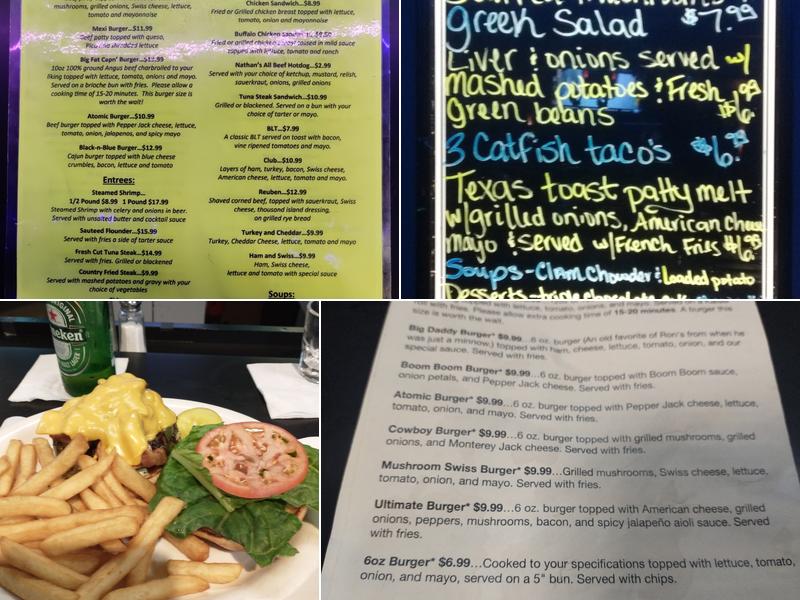 mushrooms, grilled onions, Swiss cheese, lettuce,
tomato and mayonnaise
Mexi Burger...$11.99
Beef patty topped with queso,
Pico and shredded lettuce
Big Fat Capn' Burger...$12.99
10oz 100% ground Angus beef charbroiled to your
liking topped with lettuce, tomato, onions and mayo.
Served on a brioche bun with fries. Please allow a
cooking time of 15-20 minutes. This burger size is
worth the wait!
Atomic Burger...$10.99
Beef burger topped with Pepper Jack cheese, lettuce,
tomato, onion, jalapenos, and spicy mayo
Black-n-Blue Burger...$12.99
Cajun burger topped with blue cheese
crumbles, bacon, lettuce and tomato
Entrees:
Steamed Shrimp...
1/2 Pound $8.99 1 Pound $17.99
Steamed Shrimp with celery and onions in beer.
Served with unsalted butter and cocktail sauce
Sauteed Flounder...$15.99
Served with fries a side of tarter sauce
Fresh Cut Tuna Steak...$14.99
Served with fries. Grilled or blackened
Country Fried Steak...$9.99
Served with mashed potatoes and gravy with your
choice of vegetables
Chicken Sandwich...$8.99
Fried or Grilled chicken breast topped with lettuce,
tomato, onion and mayonnaise
Buffalo Chicken Sandwich...$9.50
Fried or grilled chicken breast tossed in mild sauce
topped with lettuce, tomato and ranch
Nathan's All Beef Hotdog...$2.99
Served with your choice of ketchup, mustard, relish,
saurkraut, onions, grilled onions
Tuna Steak Sandwich...$10.99
Grilled or blackened. Served on a bun with your
choice of tarter or mayo.
BLT...$7.99
A classic BLT served on toast with bacon,
vine ripened tomatoes and mayo.
Club...$10.99
Layers of ham, turkey, bacon, Swiss cheese,
American cheese, lettuce, tomato and mayo.
Reuben...$12.99
Shaved corned beef, topped with saurkraut, Swiss
cheese, thousand island dressing,
on grilled rye bread
Turkey and Cheddar...$9.99
Turkey, Cheddar Cheese, lettuce, tomato and mayo
Ham and Swiss...$9.99
Ham, Swiss cheese,
lettuce and tomato with special sauce
Soups:
Greek Salad $7.99
Liver & onions served w/
mashed potatoes & Fresh
green beans
3 Catfish taco's $6.99
Texas toast patty melt
w/grilled onions, American Cheese
mayo & served w/French Fries
Soups - Clam Chowder & Loaded potato
ORIGINAL
Heineken
size is worth the wait.
Big Daddy Burger* $9.99...6 oz. burger (An old favorite of Ron's from when he
was just a minnow,) topped with ham, cheese, lettuce, tomato, onion, and our
special sauce. Served with fries.
Boom Boom Burger* $9.99...6 oz. burger topped with Boom Boom sauce,
onion petals, and Pepper Jack cheese. Served with fries.
Atomic Burger* $9.99...6 oz. burger topped with Pepper Jack cheese, lettuce,
tomato, onion, and mayo. Served with fries.
Cowboy Burger* $9.99...6 oz. burger topped with grilled mushrooms, grilled
onions, and Monterey Jack cheese. Served with fries.
Mushroom Swiss Burger* $9.99...Grilled mushrooms, Swiss cheese, lettuce,
tomato, onion, and mayo. Served with fries.
Ultimate Burger* $9.99...6 oz. burger topped with American cheese, grilled
onions, peppers, mushrooms, bacon, and spicy jalapeño aioli sauce. Served
with fries.
6oz Burger* $6.99...Cooked to your specifications topped with lettuce, tomato,
onion, and mayo, served on a 5" bun. Served with chips.